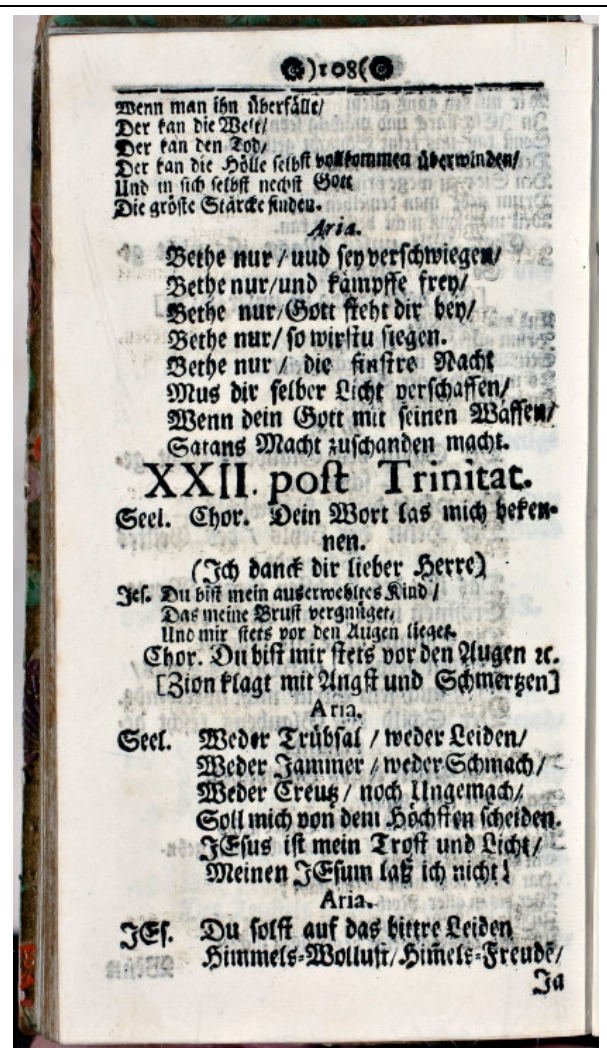 )108(
Wenn man ihn überfällt/
Der kan die Welt/
Der kan den Tod/
Der kan die Hölle selbst vollkommen überwinden/
Und in sich selbst nechst Gott
Die gröste Stärcke finden.
Aria.
Bethe nur / uud sey verschwiegen/
Bethe nur/und kämpffe frey/
Bethe nur/Gott steht dir bey/
Bethe nur/ so wirstu siegen.
Bethe nur / die finstre Nacht
Mus dir selber Licht verschaffen/
Wenn dein Gott mit seinen Waffen/
Satans Macht zuschanden macht.
XXII. post Trinitat.
Seel. Chor. Dein Wort las mich beken-
nen.
(Ich danck dir lieber Herre)
Jes. Du bist mein auserwehltes Kind /
Das meine Brust vergnüget,
Und mir stets vor den Augen lieget.
Chor. Du bist mir stets vor den Augen ꝛc.
[Zion klagt mit Angst und Schmertzen]
Aria.
Seel. Weder Trübsal / weder Leiden/
Weder Jammer / weder Schmach/
Weder Creutz / noch Ungemach/
Soll mich von dem Höchsten scheiden.
JEsus ist mein Trost und Licht/
Meinen JEsum laß ich nicht!
Aria.
JEs. Du solst auf das bittre Leiden
Himmels-Wollust/Him̃els-Freudẽ/
Ja